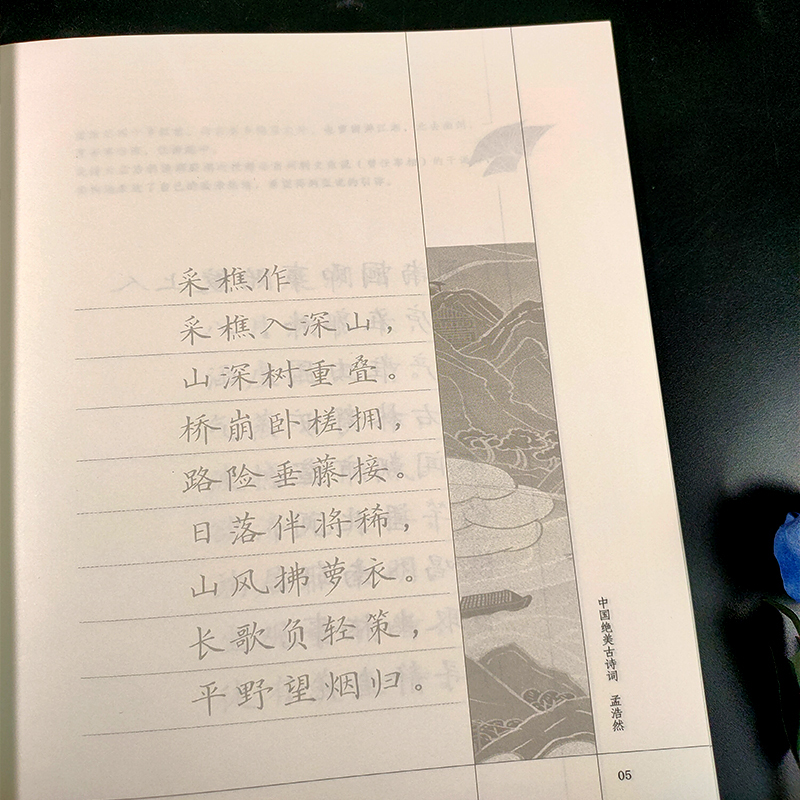 采樵作
采樵入深山，
山深树重叠。
桥崩卧槎拥，
路险垂藤接。
日落伴将稀，
山风拂萝衣。
长歌负轻策，
平野望烟归。
中国绝美古诗词 孟浩然
05